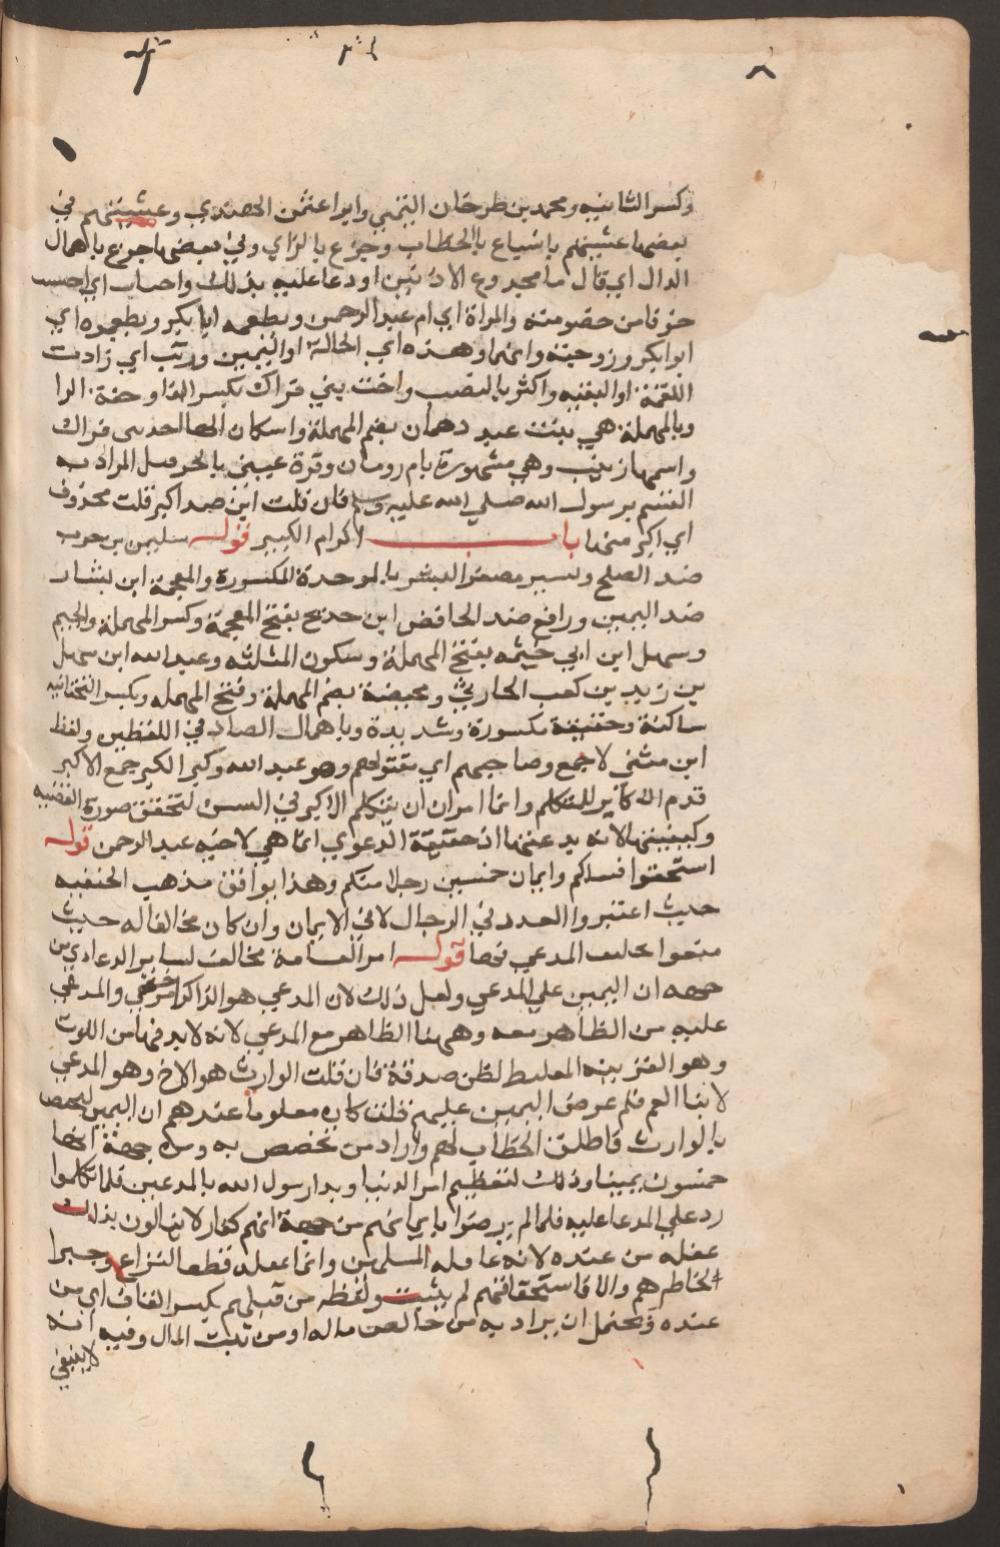 وكسر الثانيه ومحمد بن طرخان التيمي وابو اعثمن الهندي وعشيتهم في
بعضها عشيتهم باشباع بالخطاب وجزع بالزاي وفي بعضها جرع باهمال
الدال اي قال يا مجدوع الاذنين او دعا عليه بذلك واحساب اي احسب
خوفا من خصومته والمراة اي ام عبد الرحمن ويطعمه ابا بكر ويطعموه اي
ابو ابكر وزوجته وانما وهذه اي الحالة او اليمين وربت اي زادت
اللقمة او البقيه واكثر بالنصب واخت بني فراك بكسر الفا وخفة الرا
وبالمهملة هي بنت عبد دهمان بضم المهملة واسكان الها احد بني فراك
واسمها زينب وهي مشهورة بام رومان وقرة عيني بالجر لعل المراد به
القسم برسول الله صلي الله عليه وسلم فان قلت اين صد اكبر قلت محذوف
اي اكبر منها باب اكرام الكبير قوله سليمن بن حرب
ضد الصلح وبسير مصغر البشر بالموحدة المكسورة والمعجمة ابن بشار
ضد اليمين ورافع ضد الخافض ابن خديج بفتح المعجمة وكسر المهملة والجيم
وسهل ابن ابي خيثمه بفتح المهملة وسكون المثلثه وعبد الله ابن سهل
بن زيد بن كعب الحارثي ومحيصة بضم المهملة وفتح المهمله وبكسر التحتانيه
ساكنة وخفيفة مكسورة وشديدة وباهمال الصاد في اللفظين ولفظ
ابن مثني لا جمع وصاحبهم اي مقتولهم وهو عبد الله وكبر الكبر جمع الاكبر
قدم الاكابر للتكلم وانما امر ان يتكلم الاكبر في السن لتحقق صورة القضيه
وكيفيتها لانه يدعنها اذ حقيقة الدعوي انما هي لاخيه عبد الرحمن قوله
استحقوا فسلكم وايمان خمسين رجلا منكم وهذا يوافق مذهب الحنفيه
حيث اعتبروا العدد في الرجال لا في الايمان وان كان مخالفا له حيث
منعوا تحليف المدعي فصا قوله امر القسامة مخالف لساير الدعاوي من
جهه ان اليمين علي المدعي ولعل ذلك لان المدعي هو الذاكر امر خفي والمدعي
عليه من الظاهر معه وههنا الظاهر مع المدعي لانه لا بد فيها من اللوث
وهو القرينه المغلبط لظن صدقة فان قلت الوارث هو الاخ وهو المدعي
لا بنا العم فلم عرض اليمين عليهم قلت كان معلوما عندهم ان اليمين يختص
بالوارث فاطلق الخطاب لهم واراد من تخصص به ومن جهة انها
خمسون يمينا وذلك لتعظيم امر الدنيا وبدا رسول الله بالمدعين فلما نكلوا
رد علي المدعا عليه فلما لم يرضوا بايمانهم من جهة انهم كفار لا يبالون بذلك
عقله من عنده لانه عاقله المسلمين وانما عقله قطعا للنزاع وجبرا
لخاطرهم والا فاستحقاقهم لم يثبت ولفظه من قبلهم بكسر القاف اي من
عنده ويحتمل ان يراد به من خالص ماله او من بيت المال وفيه انه
لا ينبغي